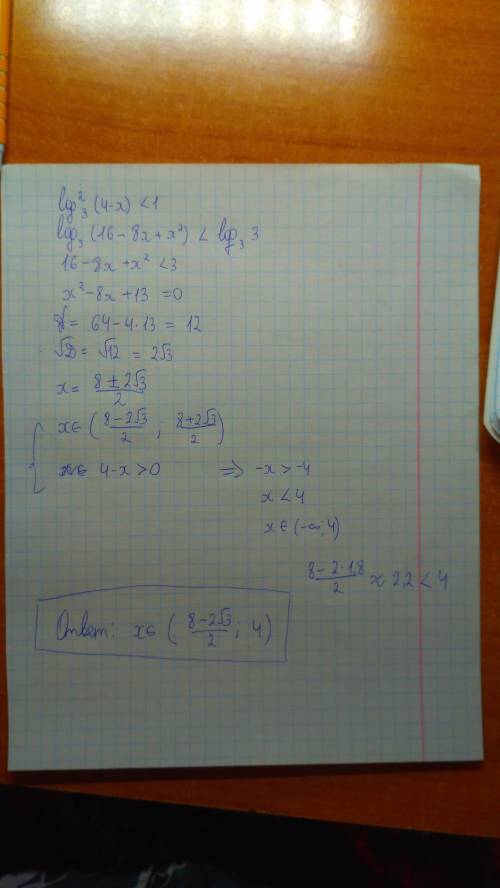 log₃²(4-x) < 1
log₃(16-8x+x²) < log₃ 3
16-8x+x² < 3
x²-8x+13 = 0
D = 64-4·13 = 12
√D = √12 = 2√3
x = (8±2√3)/2
x∈((8-2√3)/2; (8+2√3)/2)
4-x>0 ⇒ -x>-4
x<4
x∈(-∞;4)
(8-2·1,8)/2 ≈ 2,2 < 4
Ответ: x∈((8-2√3)/2; 4)